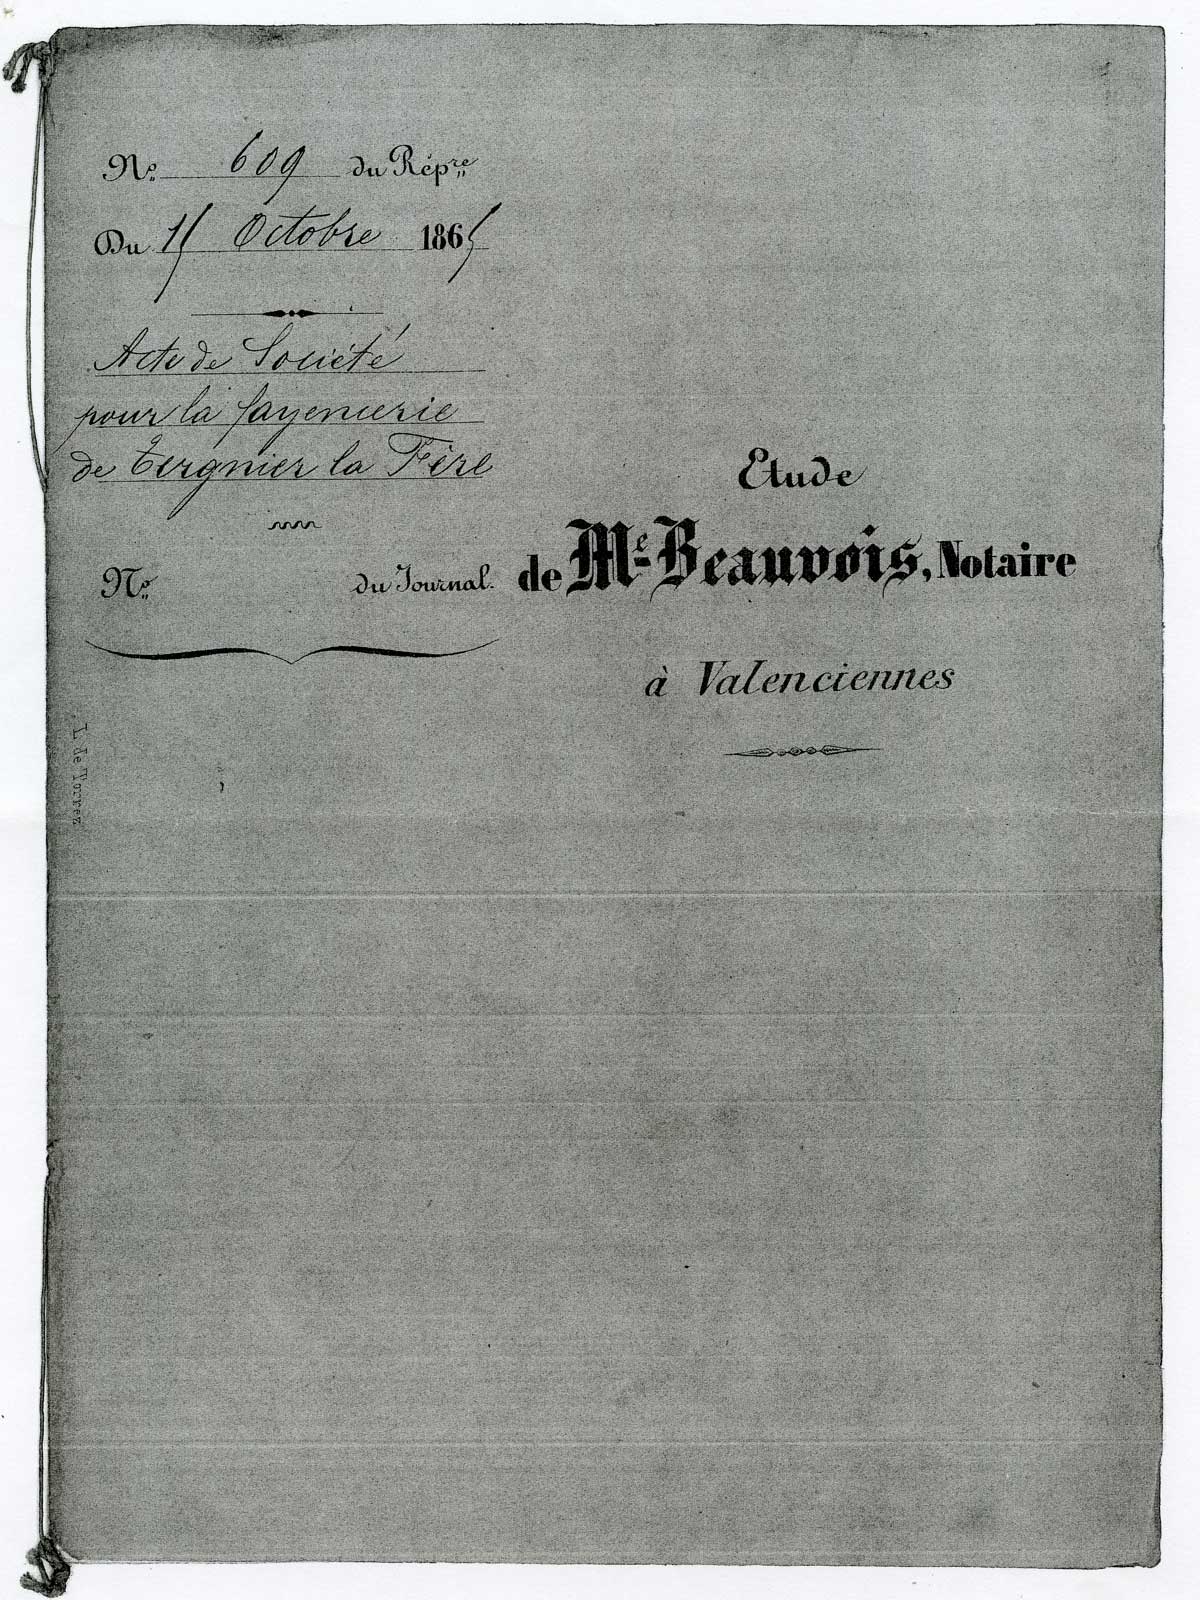 Nº 609 du Répre
Du 15 Octobre 1865
Acte de Société
pour la fayencerie
de Tergnier la Fère
Nº du Journal.
Etude
de Me Beauvois, Notaire
à Valenciennes
L. de Torrez